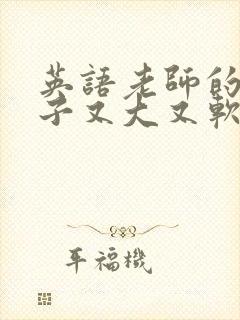 英語老師的
子又大又軟
平福機